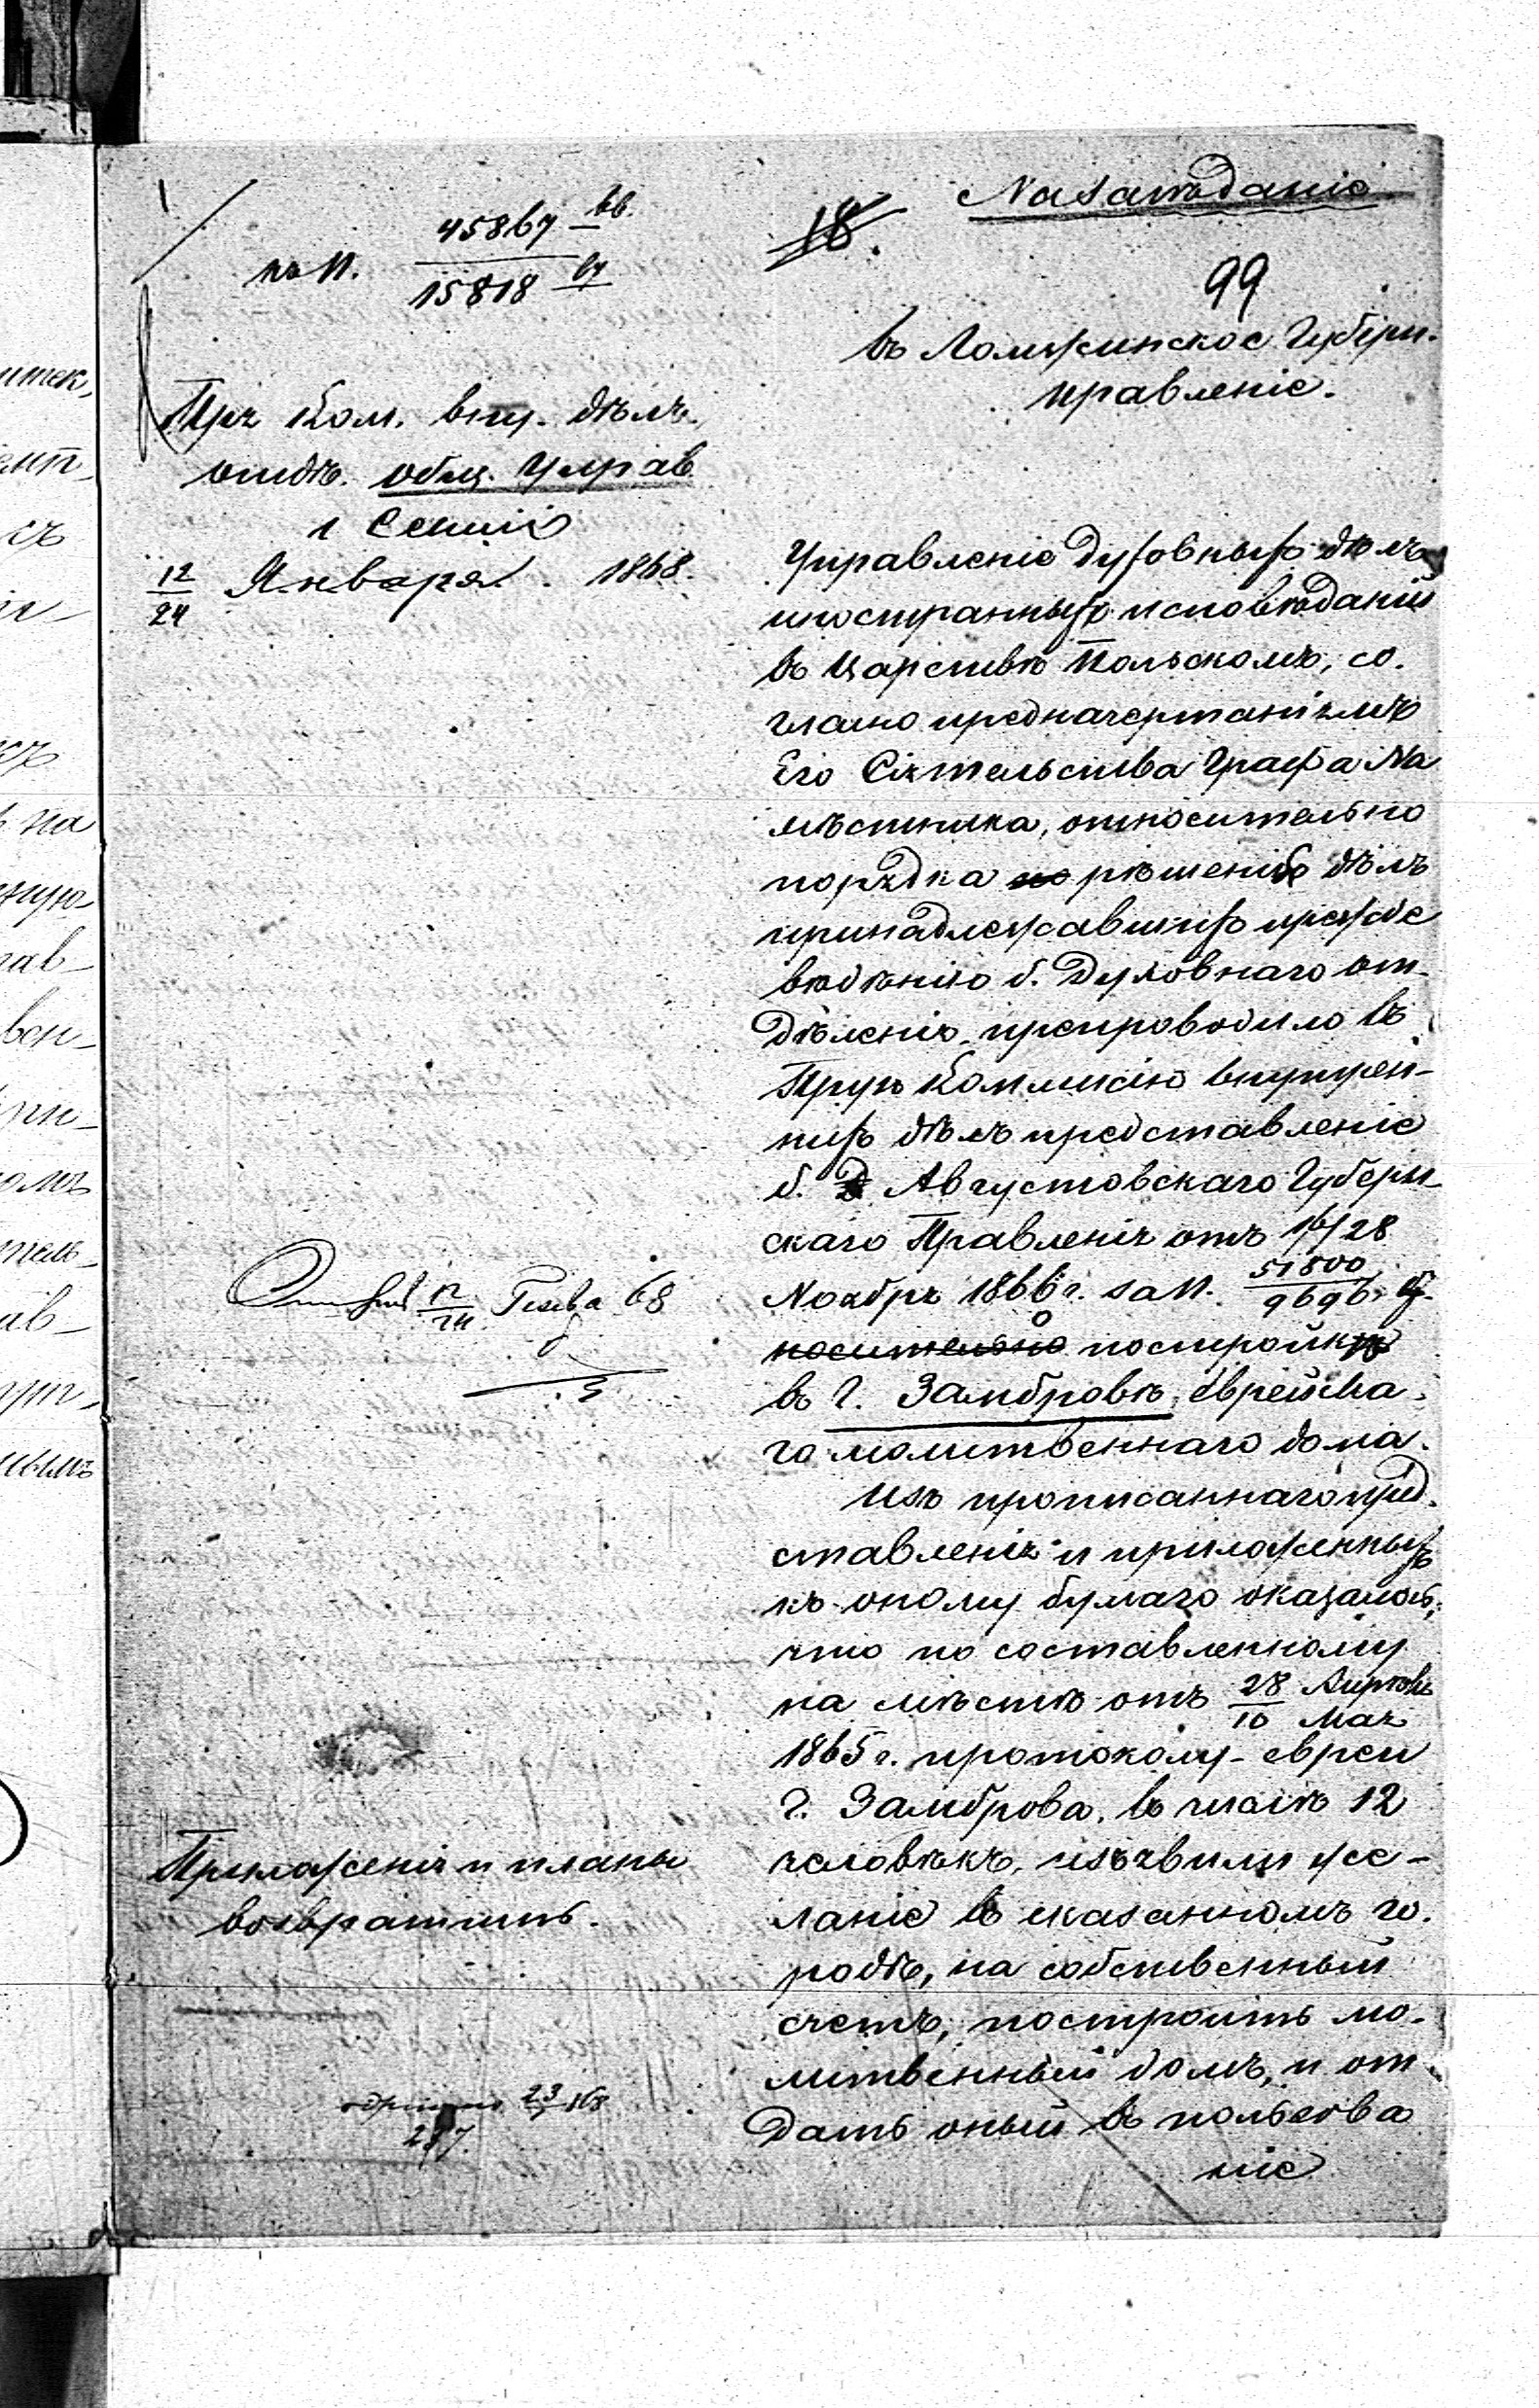 На заседаніе
18.
99
къ N. 45867 – 66. / 15818 67
въ Ломжинское Губерн.
правленіе.
Пра. Ком. вну. дѣлъ.
отдѣ. общ. управ.
1 Секція
12/24 Января 1868.
Управленіе духовныхъ дѣлъ
иностранныхъ исповѣданій
въ Царствѣ Польскомъ, со.
гласно предначертаніямъ
Его Сіятельства Графа На
мѣстника, относительно
порядка рѣшенія дѣлъ
принадлежавшихъ прежде
вѣдѣнію б. Духовнаго от-
дѣленія, препроводило въ
Прув. Коммисію внутрен-
нихъ дѣлъ представленіе
б. Августовскаго Губерн-
скаго Правленія отъ 16/28
Ноября 1866 г. за N. 51800/9696,
носительно постройки
въ г. Замбровѣ, еврейска-
го молитвеннаго дома.
Изъ прописаннаго пред.
ставленія и приложенныхъ
къ оному бумагъ оказалось,
что по составленному
на мѣстѣ отъ 28 Апрѣля / 10 Мая
1865 г. протоколу – евреи
г. Замброва, въ числѣ 12
человѣкъ, изъявили же-
ланіе въ сказанномъ го.
родѣ, на собственный
счетъ, построить мо.
литвенный домъ, и от
дать оный въ пользова
ніе
12/24 68
Приложенія и планы
возвратить.
23/1 68
287.